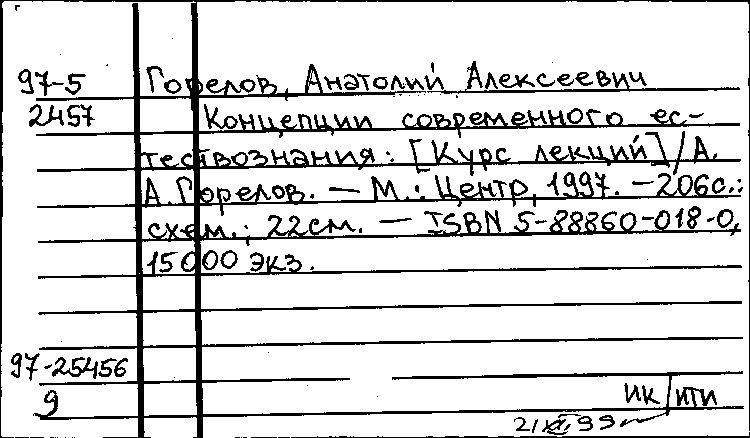 97-5 Горелов, Анатолий Алексеевич
2457 Концепции современного ес-
тествознания: [Курс лекций] / А.
А. Горелов. — М.: Центр, 1997. — 206с.:
схем.; 22см. — ISBN 5-88860-018-0,
15000 экз.
97-25456
9
ИК/ИТИ
21 XI 99